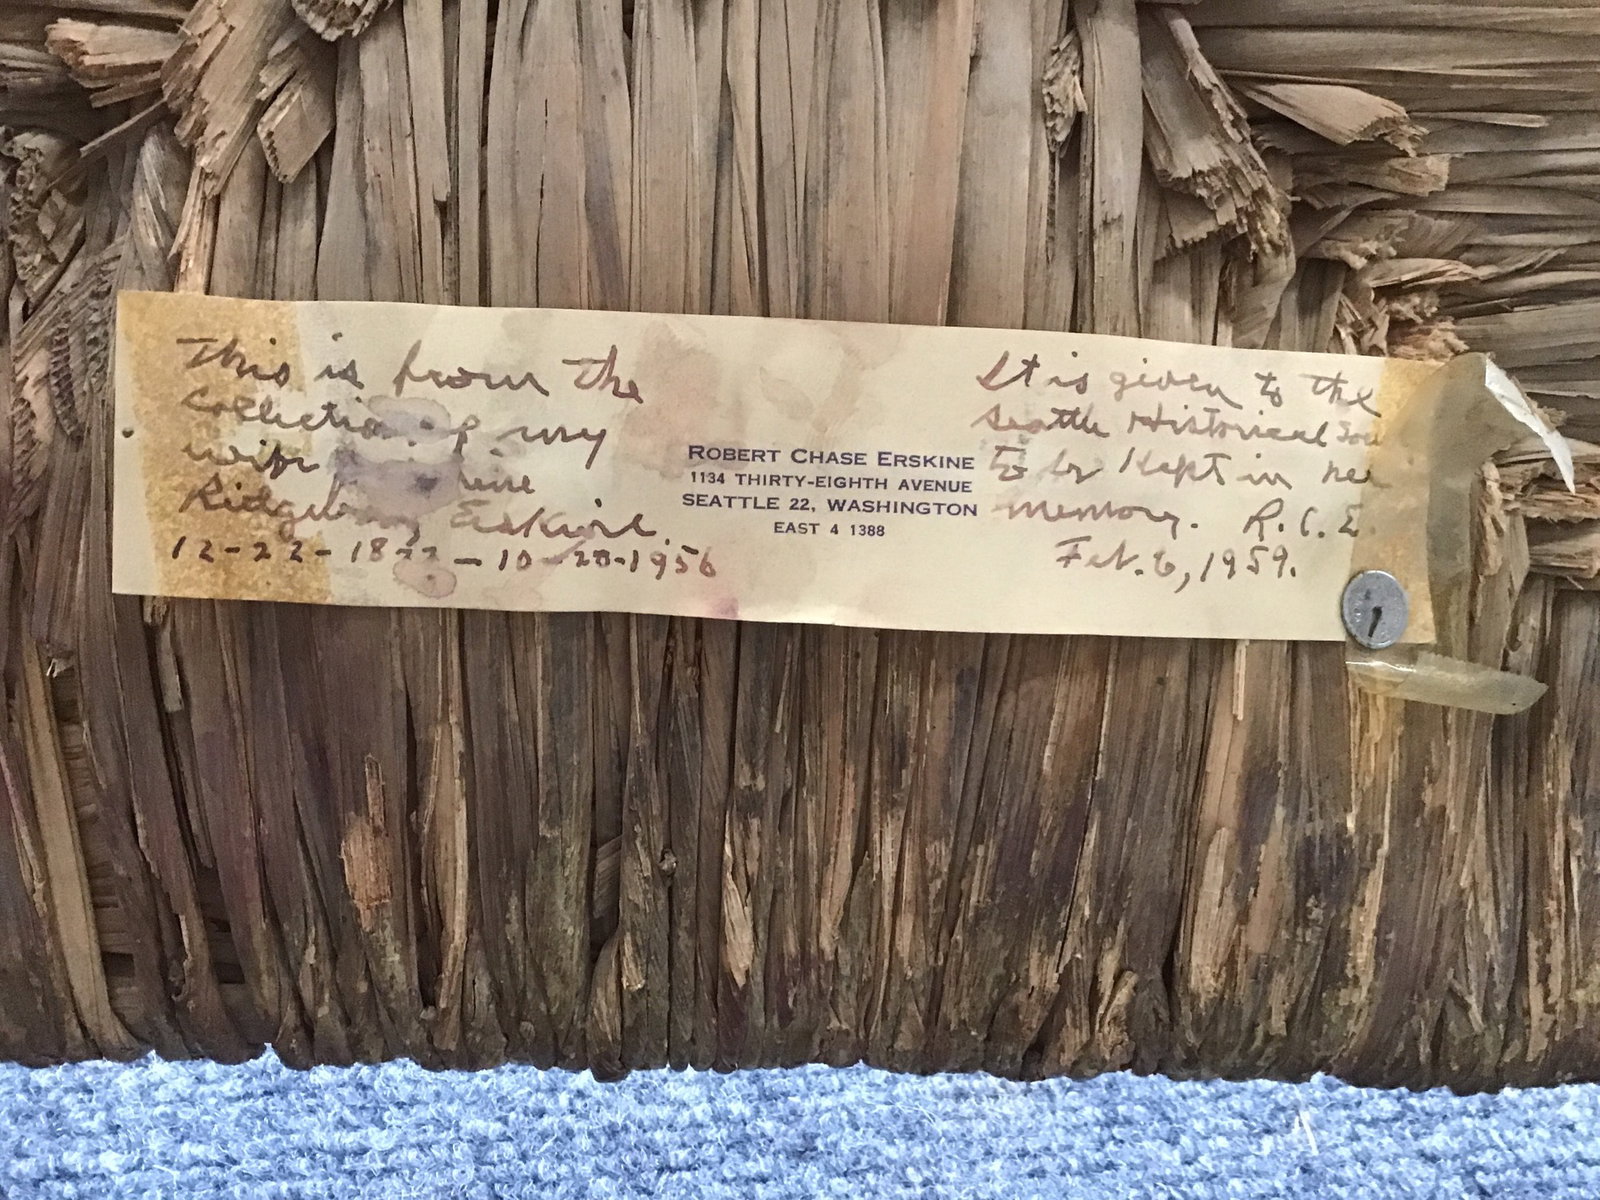 This is from the
collection of my
wife
Ridgeway Erskine.
12-22-18 - 10-28-1956
ROBERT CHASE ERSKINE
1134 THIRTY-EIGHTH AVENUE
SEATTLE 22, WASHINGTON
EAST 4 1388
It is given to the
Seattle Historical Soc
to be Kept in her
memory. R.C.E.
Feb. 6, 1959.